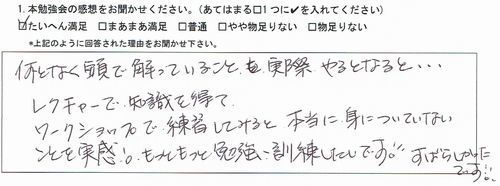 1. 本勉強会の感想をお聞かせください。(あてはまる□1つに✔を入れてください)
☑たいへん満足 □まあまあ満足 □普通 □やや物足りない □物足りない
*上記のように回答された理由をお聞かせ下さい。
何となく頭で解っていること、を実際やるとなると・・・
レクチャーで知識を得て、
ワークショップで練習してみると本当に身についていない
ことを実感!。もっともっと勉強い訓練したいです!。すばらしかった
です!!。